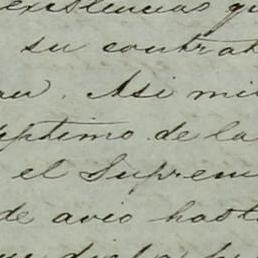 existencias q
su contrat
au. Asi mi
septimo de la
el Suprem
de avio hast